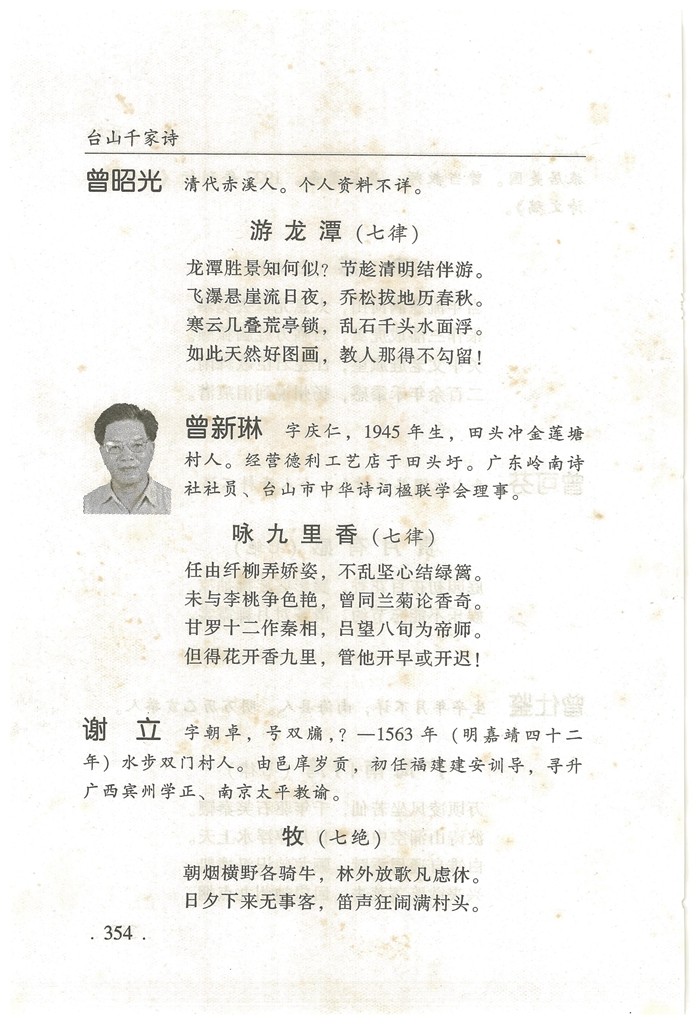 台山千家诗
曾昭光 清代赤溪人。个人资料不详。
游龙潭（七律）
龙潭胜景知何似？节趁清明结伴游。
飞瀑悬崖流日夜，乔松拔地历春秋。
寒云几叠荒亭锁，乱石千头水面浮。
如此天然好图画，教人那得不勾留！
曾新琳 字庆仁，1945年生，田头冲金莲塘
村人。经营德利工艺店于田头圩。广东岭南诗
社社员、台山市中华诗词楹联学会理事。
咏九里香（七律）
任由纤柳弄娇姿，不乱坚心结绿篱。
未与李桃争色艳，曾同兰菊论香奇。
甘罗十二作秦相，吕望八旬为帝师。
但得花开香九里，管他开早或开迟！
谢 立 字朝卓，号双牖，？—1563年（明嘉靖四十二
年）水步双门村人。由邑庠岁贡，初任福建建安训导，寻升
广西宾州学正、南京太平教谕。
牧（七绝）
朝烟横野各骑牛，林外放歌凡虑休。
日夕下来无事客，笛声狂闹满村头。
. 354 .